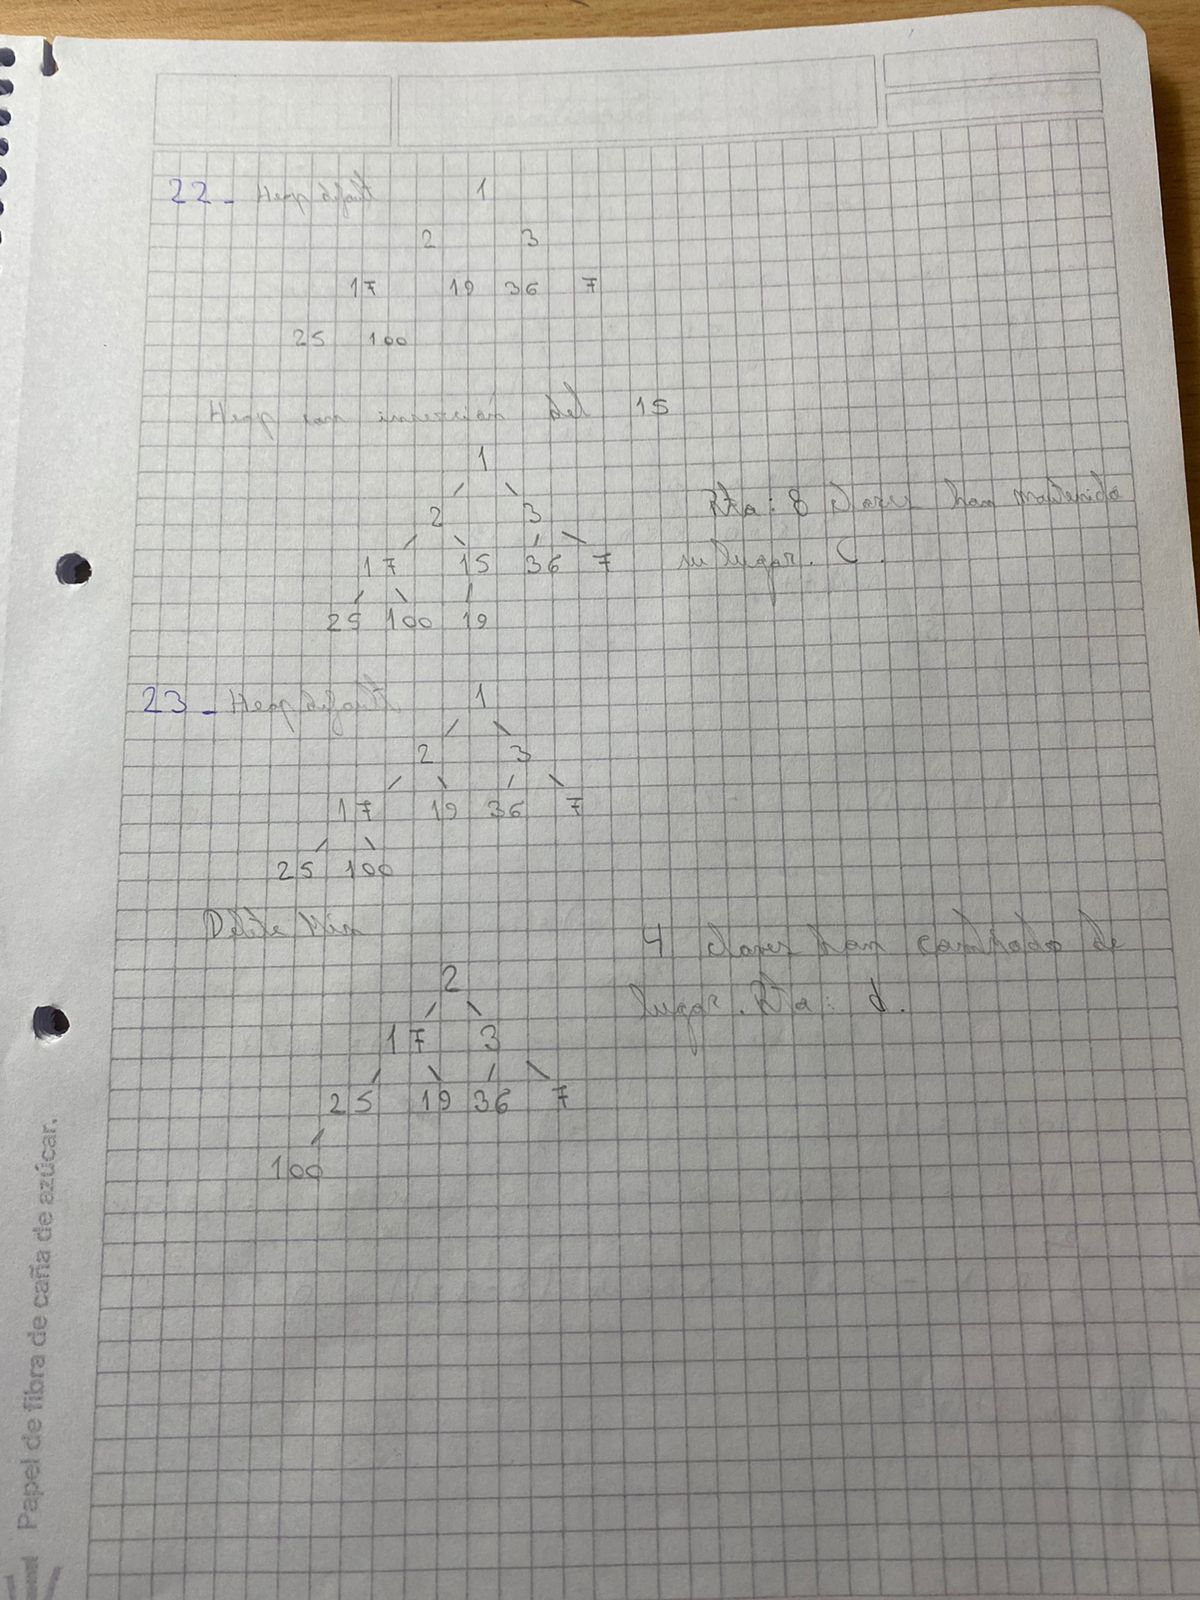 22- Heap default 1
2 3
17 19 36 7
25 100
Heap con inserción del 15
1
2 3
17 15 36 7
25 100 19
Rta: 8 claves han mantenido
su lugar. C.
23- Heap default 1
2 3
17 19 36 7
25 100
Delete Min
2
17 3
25 19 36 7
100
4 claves han cambiado de
lugar. Rta: d.
Papel de fibra de caña de azúcar.